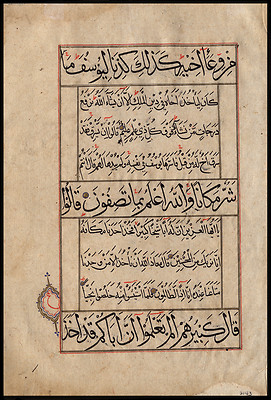 من وعاء اخيه كذلك كدنا ليوسف ما
كان لياخذ اخاه في دين الملك الا ان يشاء الله نرفع
درجات من نشاء وفوق كل ذي علم عليم قالوا ان يسرق فقد
سرق اخ له من قبل فاسرها يوسف في نفسه ولم يبدها لهم قال انتم
شر مكانا والله اعلم بما تصفون قالوا
يا ايها العزيز ان له ابا شيخا كبيرا فخذ احدنا مكانه
انا نراك من المحسنين قال معاذ الله ان ناخذ الا من وجدنا
متاعنا عنده انا اذا لظالمون فلما استيئسوا منه خلصوا نجيا
قال كبيرهم الم تعلموا ان اباكم قد اخذ